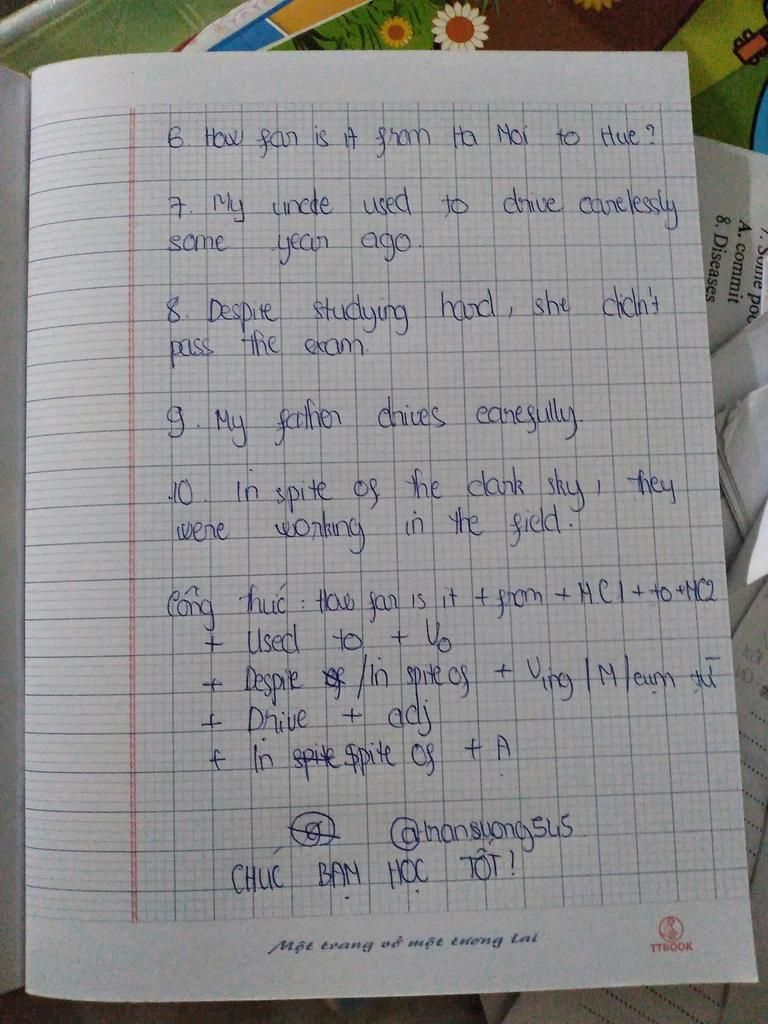 6. How far is it from Ha Noi to Hue?
7. My uncle used to drive carelessly
some year ago.
8. Despite studying hard, she didn't
pass the exam.
9. My father drives carefully.
10. In spite of the dark sky, they
were working in the field.
Công thức: How far is it + from + NC1 + to + NC2
+ Used to + Vo
+ Despite / In spite of + Ving / N / cụm từ
+ Drive + adj
+ In spite of + A
CHÚC BẠN HỌC TỐT!
Một trang vở một tương lai
TTBOOK
7. Some
A. commit
8. Diseases